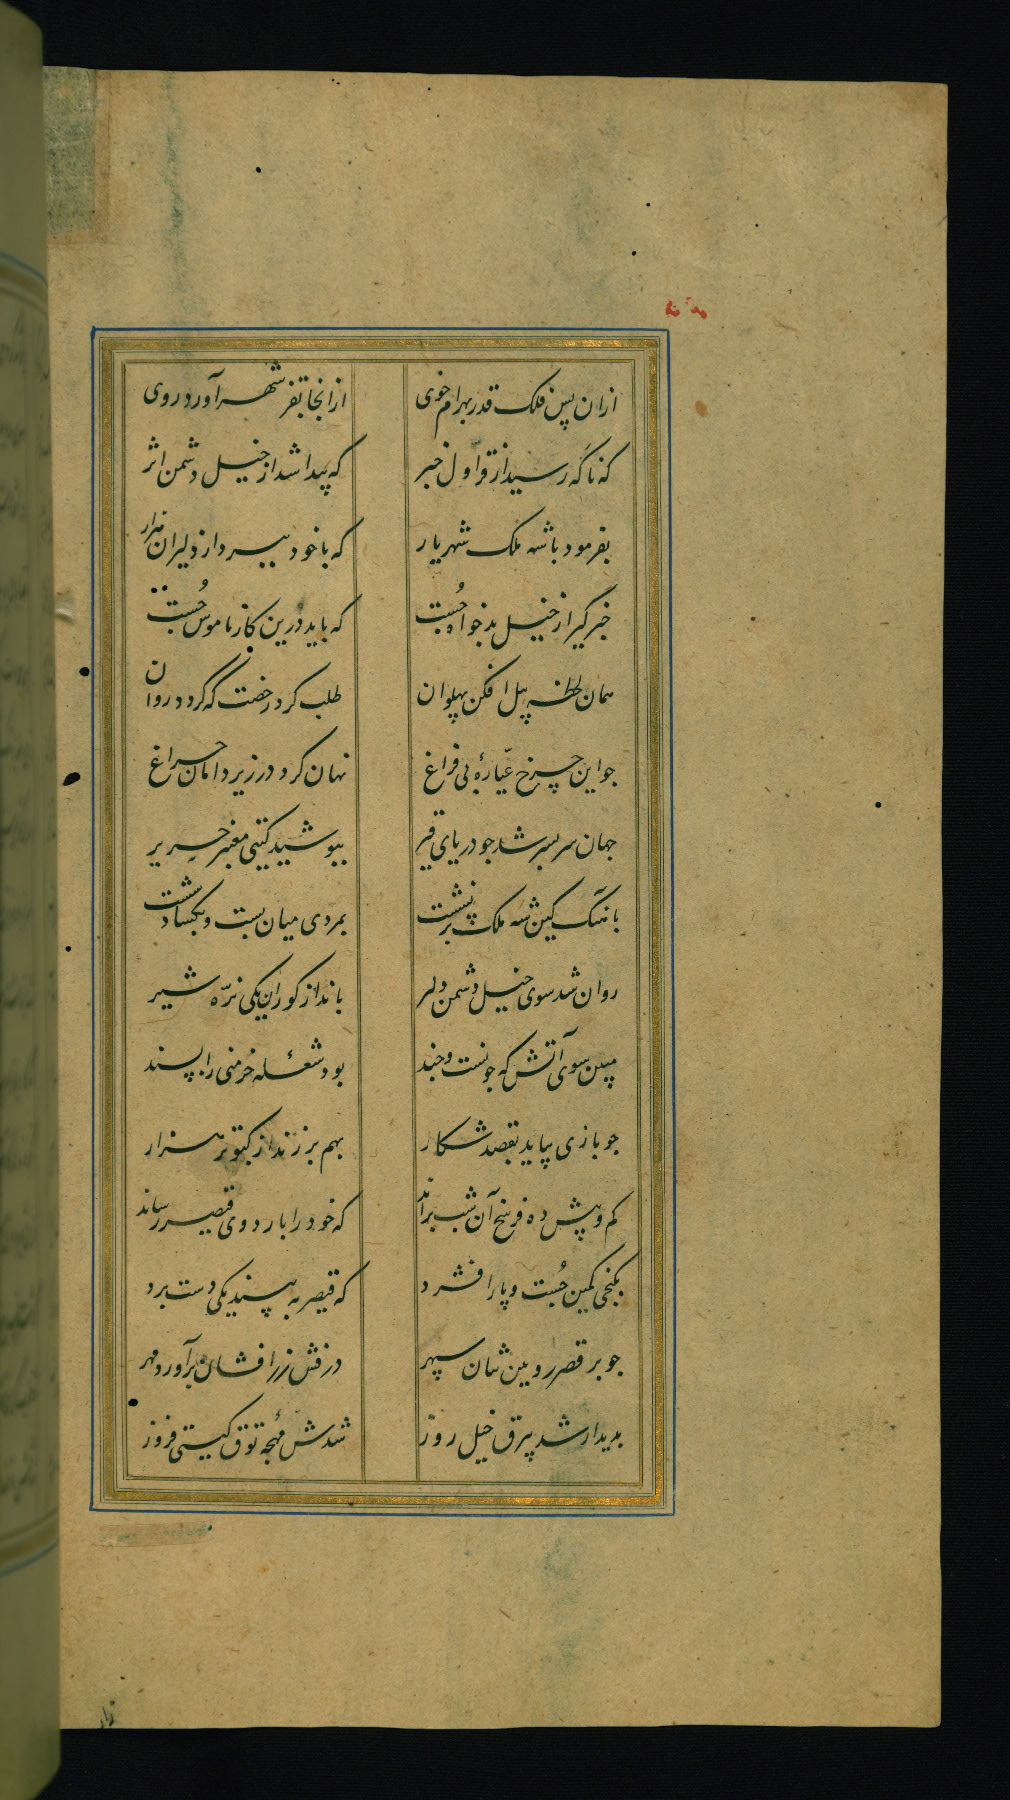 ازان پس فلک قدر بهرام خوی از انجا بتفرشهر آورد روی
که ناگه رسید از قراول خبر که پیدا شد از خیل دشمن اثر
بفرمود باشه ملک شهریار که با خود ببر از دلیران هزار
خبر گیر از خیل بدخواه جست که باید درین کار ناموس جست
همان لحظه پیل افکن پهلوان طلب کرد رخصت که گردد روان
جو این چرخ عیارهٔ بی فراغ نهان کرد در زیر دامان چراغ
جهان سر بسر شد جو دریای قیر بپوشید گیتی معنبر حریر
باهنگ کین شه ملک برنشست بمردی میان بست و بکشاد شست
روان شد سوی خیل دشمن دلیر بانداز کوران یکی نرّه شیر
مبین سوی آتش که جونست و جند بود شعله خرمنی را بسند
جو بازی بیاید بقصد شکار بهم بر زند از کبوتر هزار
کم و بیش ده فرسخ آن شب براند که خود را باردوی قیصر رساند
بکنجی کمین جُست و پا را فشرد که قیصر به بیند یکی دست برد
جو بر قصر رویین شان سپهر درفش زرافشان برآورد مهر
بدیدار شد بیرق خیل روز شدش مهجه توق گیتی فروز